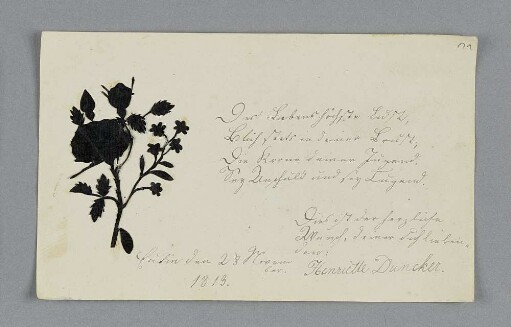 Des Lebens höchste Lust,
Blüh stets in deiner Brust,
Die Krone deiner Jugend.
Sey Unschuld und sey Tugend.
Dies ist der herzliche
Wunsch, deiner dich lieben-
den
Henriette Dancker.
den 28 Novem
ber.
1813.